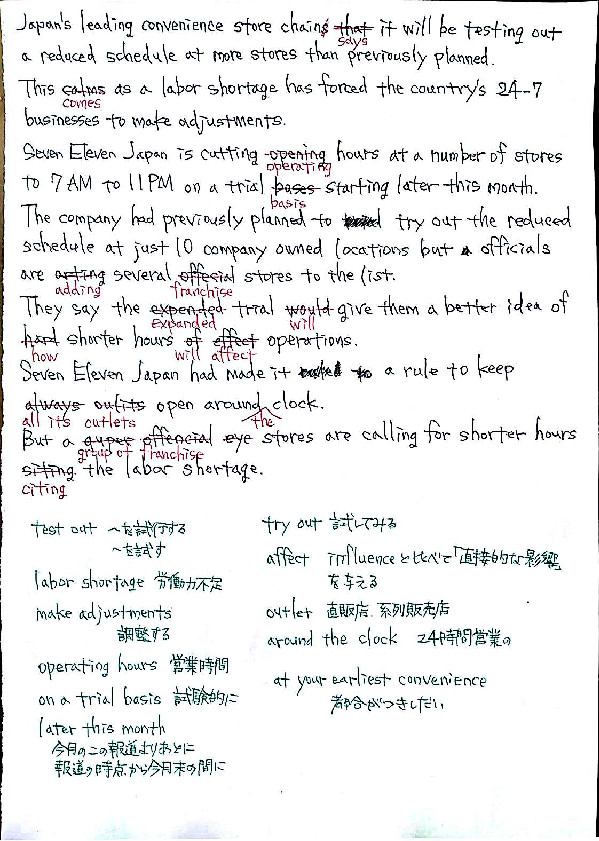 Japan's leading convenience store chains that it will be testing out
says
a reduced schedule at more stores than previously planned.
This calms as a labor shortage has forced the country's 24-7
comes
businesses to make adjustments.
Seven Eleven Japan is cutting opening hours at a number of stores
operating
to 7 AM to 11 PM on a trial bases starting later this month.
basis
The company had previously planned to try out the reduced
schedule at just 10 company owned locations but officials
are acting several offecial stores to the list.
adding franchise
They say the expended trial would give them a better idea of
expanded will
hard shorter hours of effect operations.
how will affect
Seven Eleven Japan had made it a rule to keep
always outits open around clock.
all its outlets the
But a offencial eye stores are calling for shorter hours
group of franchise
siting the labor shortage.
citing
test out ～を試行する
～を試す
labor shortage 労働力不足
make adjustments
調整する
operating hours 営業時間
on a trial basis 試験的に
later this month
今月のこの報道よりあとに
報道の時点から今月末の間に
try out 試してみる
affect influenceと比べて「直接的な影響」
を与える
outlet 直販店、系列販売店
around the clock 24時間営業の
at your earliest convenience
都合がつきしだい